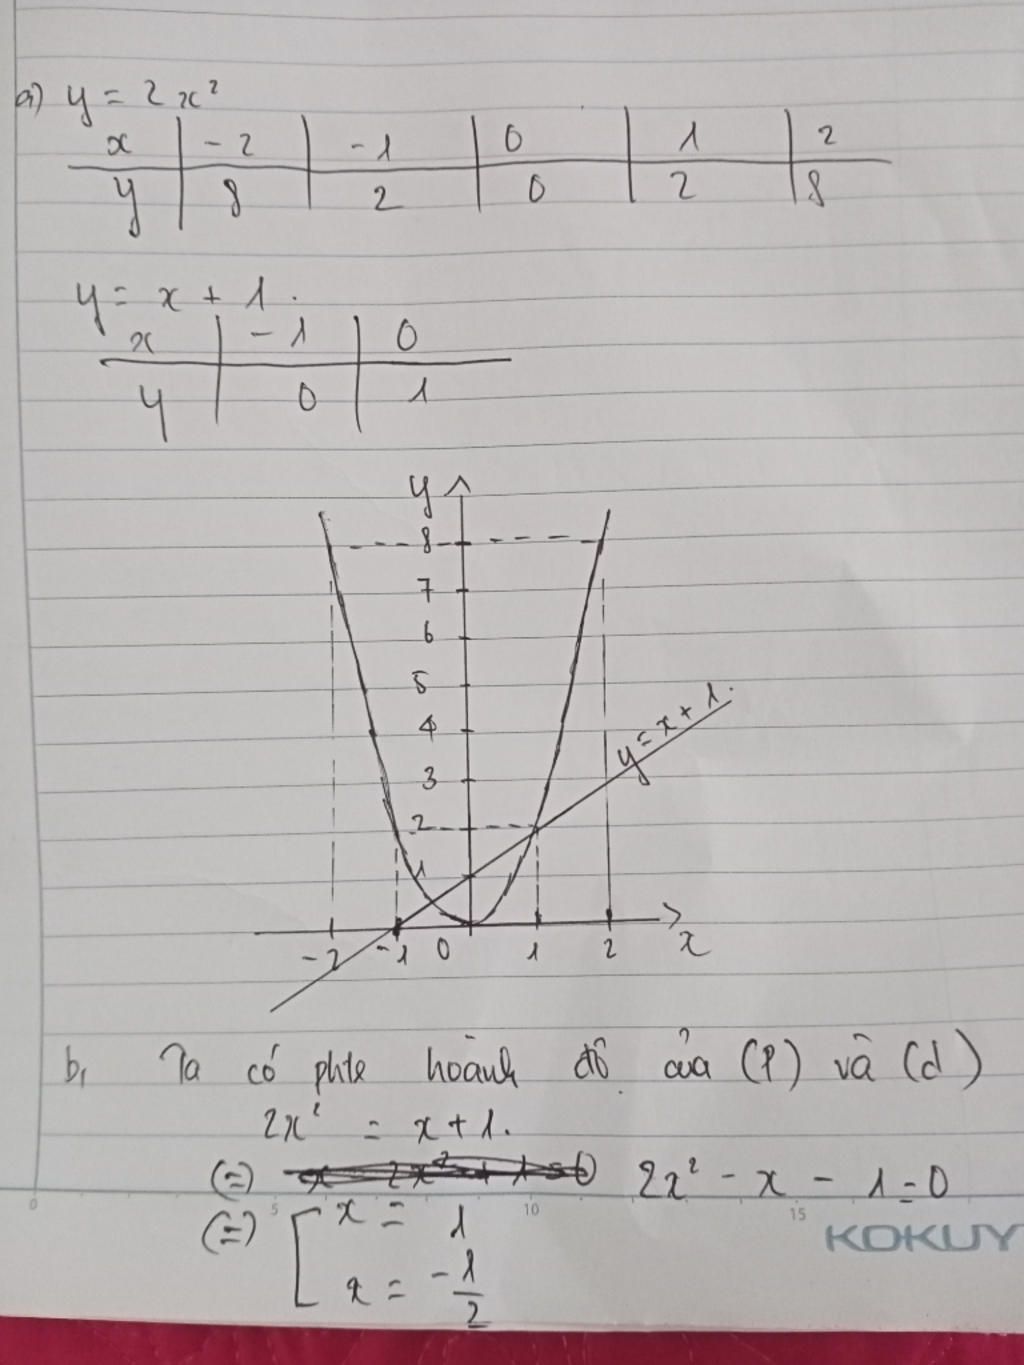 a) y = 2x²
x | -2 | -1 | 0 | 1 | 2
y | 8 | 2 | 0 | 2 | 8
y = x + 1.
x | -1 | 0
y | 0 | 1
y
8
7
6
5
4
3
2
1
y = x + 1.
-2 -1 0 1 2 x
b, Ta có phtr hoành độ của (P) và (d)
2x² = x + 1.
(=) 2x² - x - 1 = 0
(=) [ x = 1
x = -1/2
0 5 10 15
KOKUY